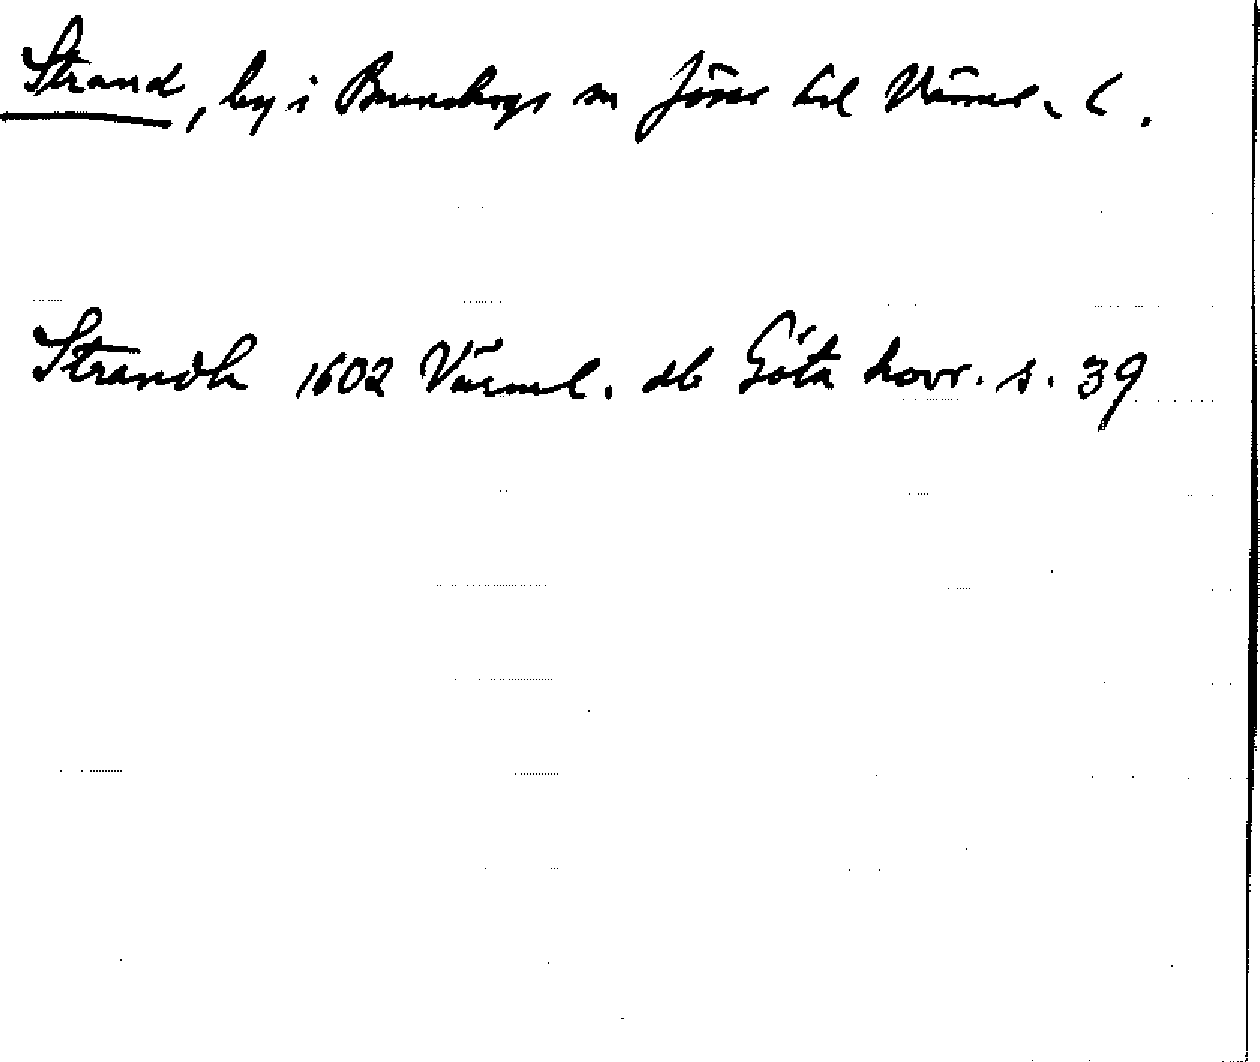 Strand, by i Brunskogs sn Jösse hd Värml. l.
Strandh 1602 Värml. db Göta hovr. s. 39